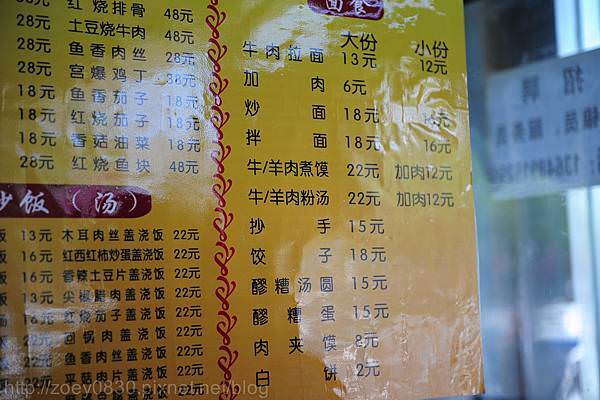 38元 红烧排骨 48元
28元 土豆烧牛肉 48元
28元 鱼香肉丝 28元
28元 宫爆鸡丁 38元
18元 鱼香茄子 18元
18元 红烧茄子 18元
18元 香菇油菜 18元
28元 红烧鱼块 48元
炒饭（汤）
饭 13元 木耳肉丝盖浇饭 22元
饭 16元 红西红柿炒蛋盖浇饭 22元
饭 16元 香辣土豆片盖浇饭 22元
13元 尖椒腊肉盖浇饭 22元
16元 红烧茄子盖浇饭 22元
22元 回锅肉盖浇饭 22元
22元 鱼香肉丝盖浇饭 22元
22元 平菇肉片盖浇饭 22元
面食
大份 小份
牛肉拉面 13元 12元
加肉 6元
炒面 18元 16元
拌面 18元 16元
牛/羊肉煮馍 22元 加肉12元
牛/羊肉粉汤 22元 加肉12元
抄手 15元
饺子 18元
醪糟汤圆 15元
醪糟蛋 15元
肉夹馍 8元
白饼 2元
招聘
http://zoey0830.pixnet.net/blog